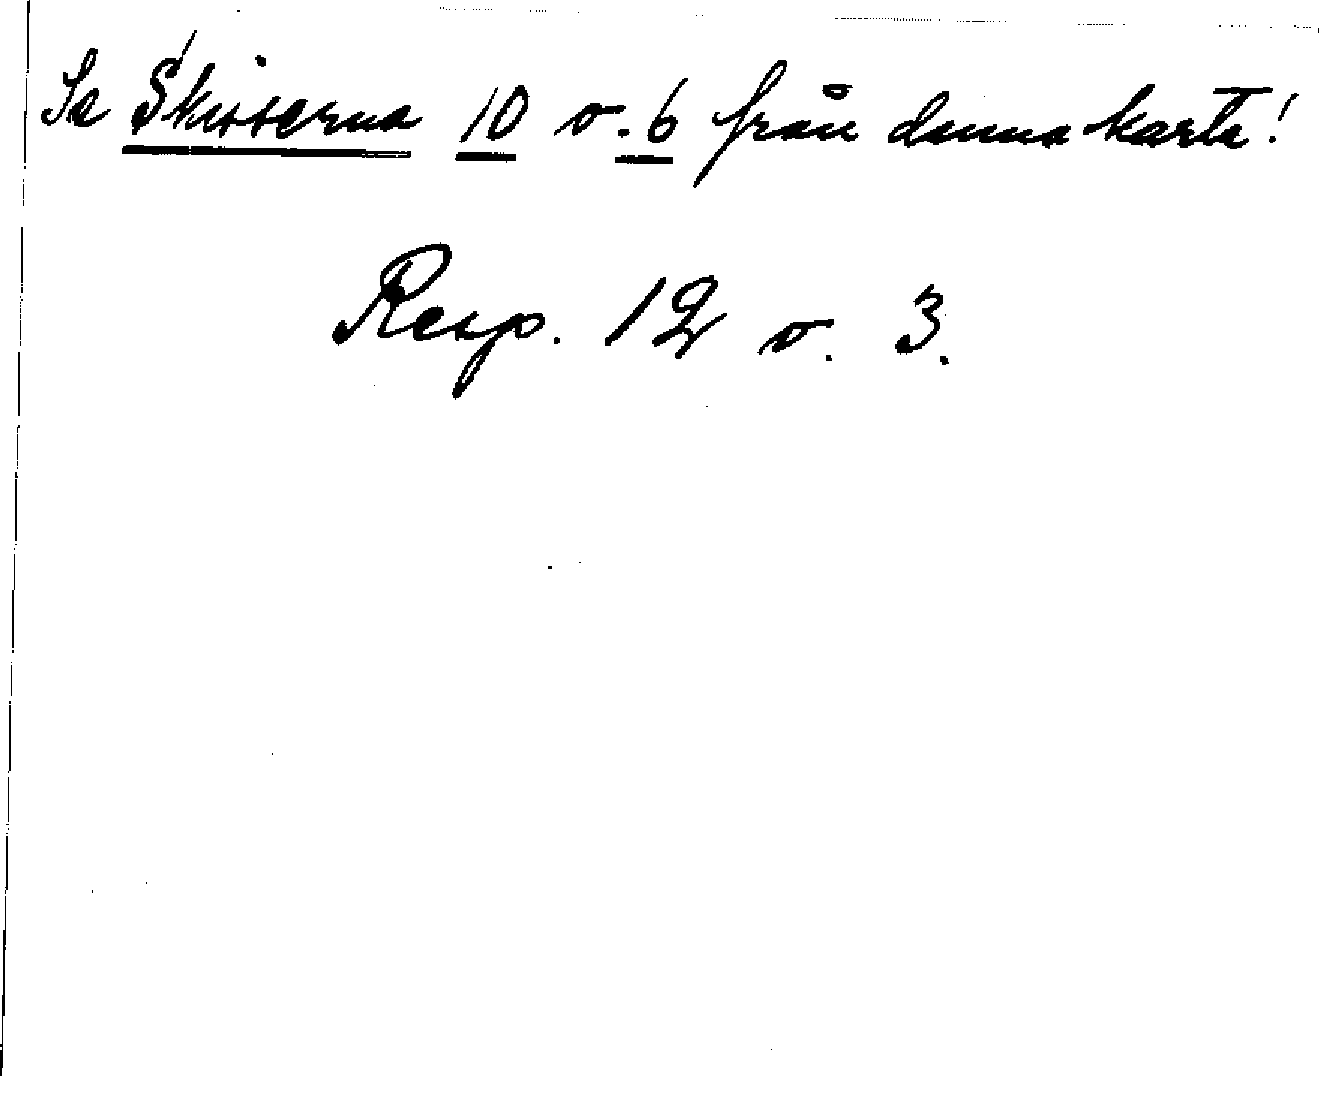 Se Skisserna 10 o. 6 från denna karta!
Resp. 12 o. 3.